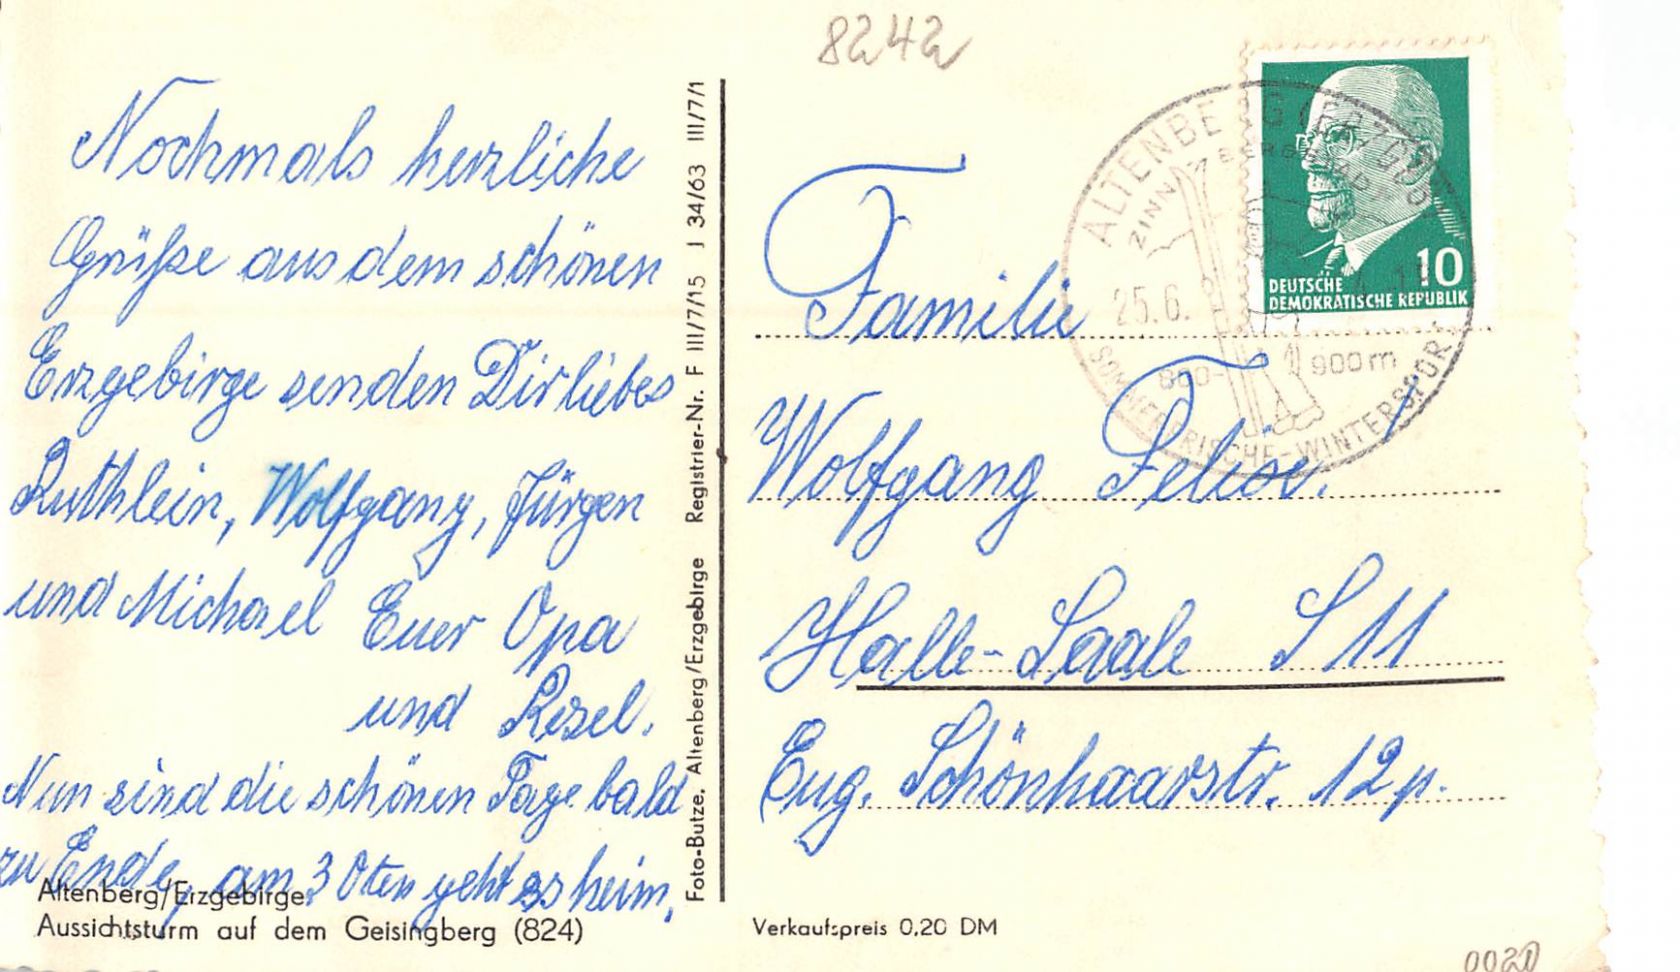 8242
Nochmals herzliche
Grüße aus dem schönen
Erzgebirge senden Dir liebes
Ruthlein, Wolfgang, Jürgen
und Michael Euer Opa
und Resel.
Nun sind die schönen Tage bald
zu Ende, am 30ten geht es heim.
Altenberg/Erzgebirge
Aussichtsturm auf dem Geisingberg (824)
Foto-Butze, Altenberg/Erzgebirge Registrier-Nr. F III/7/15 J 34/63 III/7/1
ALTENBERG (ERZGEB)
ZINN BERGBAU
25.6.
800- 900 m
SOMMERFRISCHE-WINTERSPORT
10
DEUTSCHE
DEMOKRATISCHE REPUBLIK
Familie
Wolfgang
Halle-Saale S 11
Eug. Schönhaarstr. 12 p.
Verkaufspreis 0,20 DM
0020